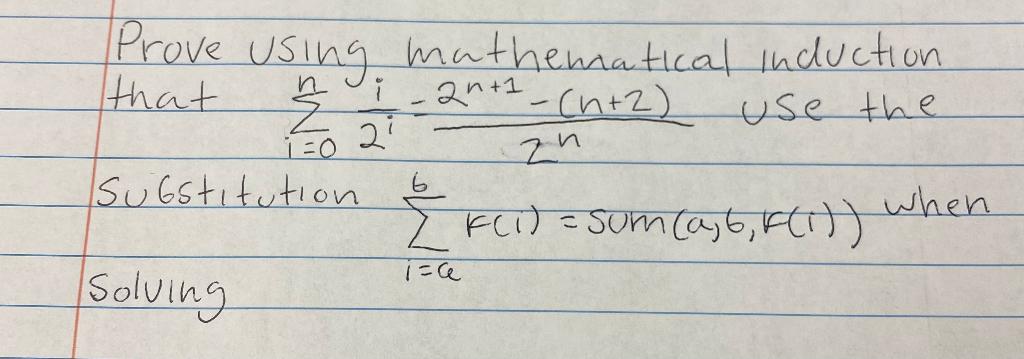 Prove using mathematical induction
that \sum_{i=0}^{n} \frac{i}{2^i} - \frac{2^{n+1} - (n+2)}{2^n} use the
substitution \sum_{i=a}^{b} F(i) = sum(a,b,F(i)) when
solving